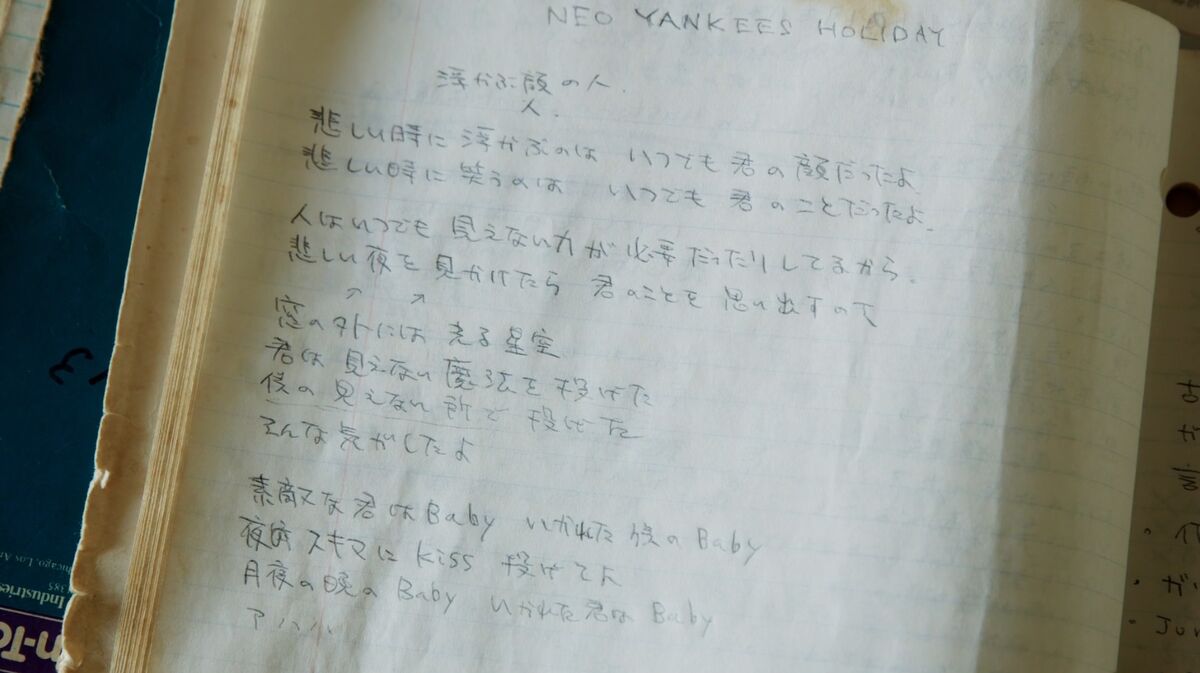 NEO YANKEES HOLIDAY
浮かぶ顔の人.
人.
悲しい時に浮かぶのは いつでも君の顔だったよ
悲しい時に笑うのは いつでも君のことだったよ.
人はいつでも見えない力が必要だったりしてるから.
悲しい夜を見かけたら 君のことを思い出すので
窓の外には光る星空
君は見えない魔法を投げた
僕の見えない所で投げた
そんな気がしたよ
素敵な君はBaby いかれた僕のBaby
夜のスキマにKiss投げてよ
月夜の晩のBaby いかれた君はBaby
アハハ
13
385
Chicago, Los An
Industries
n-To
Jun